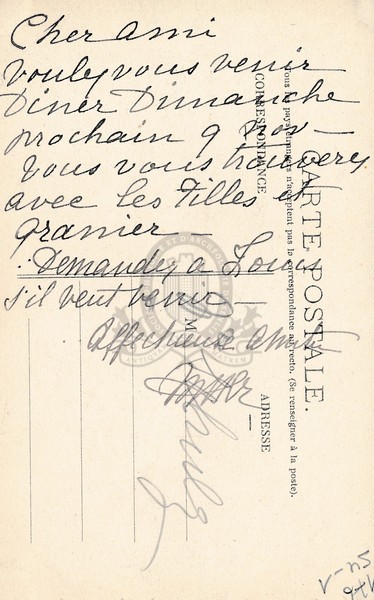 Cher Ami
Voulez vous venir
Diner Dimanche
prochain 9 Nov –
Vous vous trouverez
avec les Filles et
Granier –
Demandez a Louis
s'il veut venir –
Affectueuse Amitié
CARTE POSTALE.
Tous les pays étrangers n'acceptent pas la correspondance au recto. (Se renseigner à la poste).
CORRESPONDANCE
ADRESSE
M